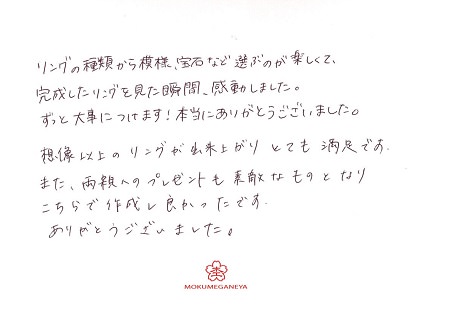 リングの種類から模様、宝石など選ぶのが楽しくて、
完成したリングを見た瞬間、感動しました。
ずっと大事につけます！本当にありがとうございました。
想像以上のリングが出来上がり とても満足です.
また、両親へのプレゼントも素敵なものとなり
こちらで作成し良かったです.
ありがとうございました。
MOKUMEGANEYA